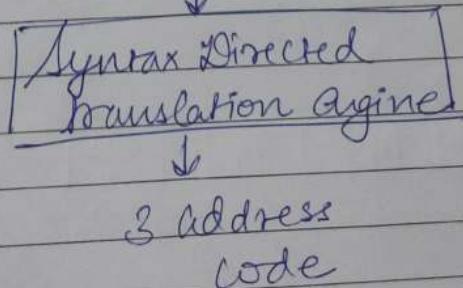 Syntax Directed
Translation Engine
3 address
code